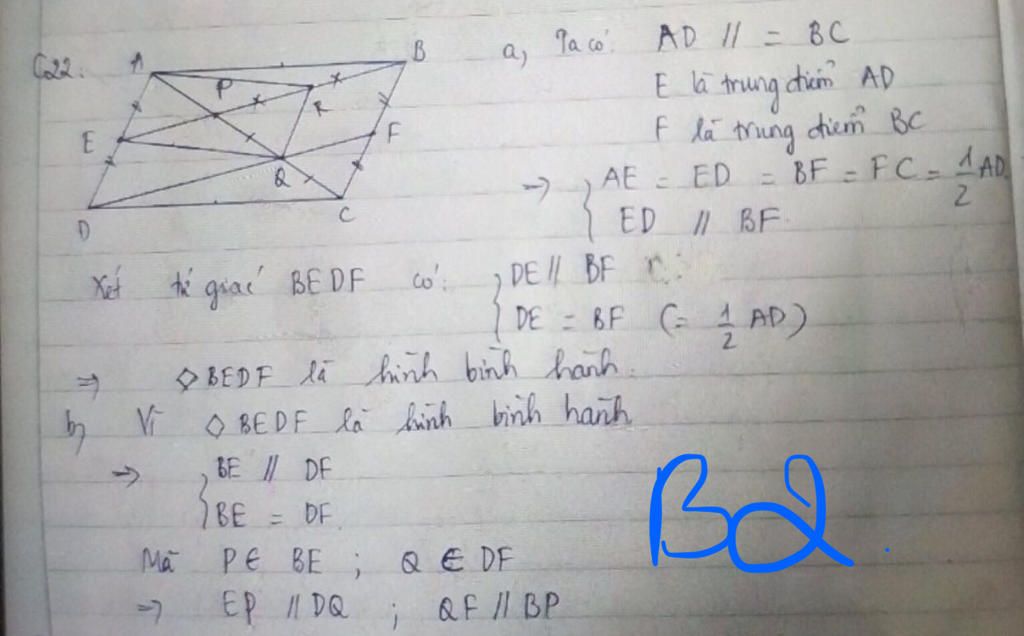 C22:
A
B
P
R
E
F
Q
D
C
a, Ta có: AD // = BC
E là trung điểm AD
F là trung điểm BC
=> { AE = ED = BF = FC = 1/2 AD
ED // BF
Xét tứ giác BEDF có: { DE // BF
DE = BF (= 1/2 AD)
=> ◇ BEDF là hình bình hành.
b, Vì ◇ BEDF là hình bình hành
=> { BE // DF
BE = DF.
Mà P ∈ BE ; Q ∈ DF
=> EP // DQ ; QF // BP
BQ.